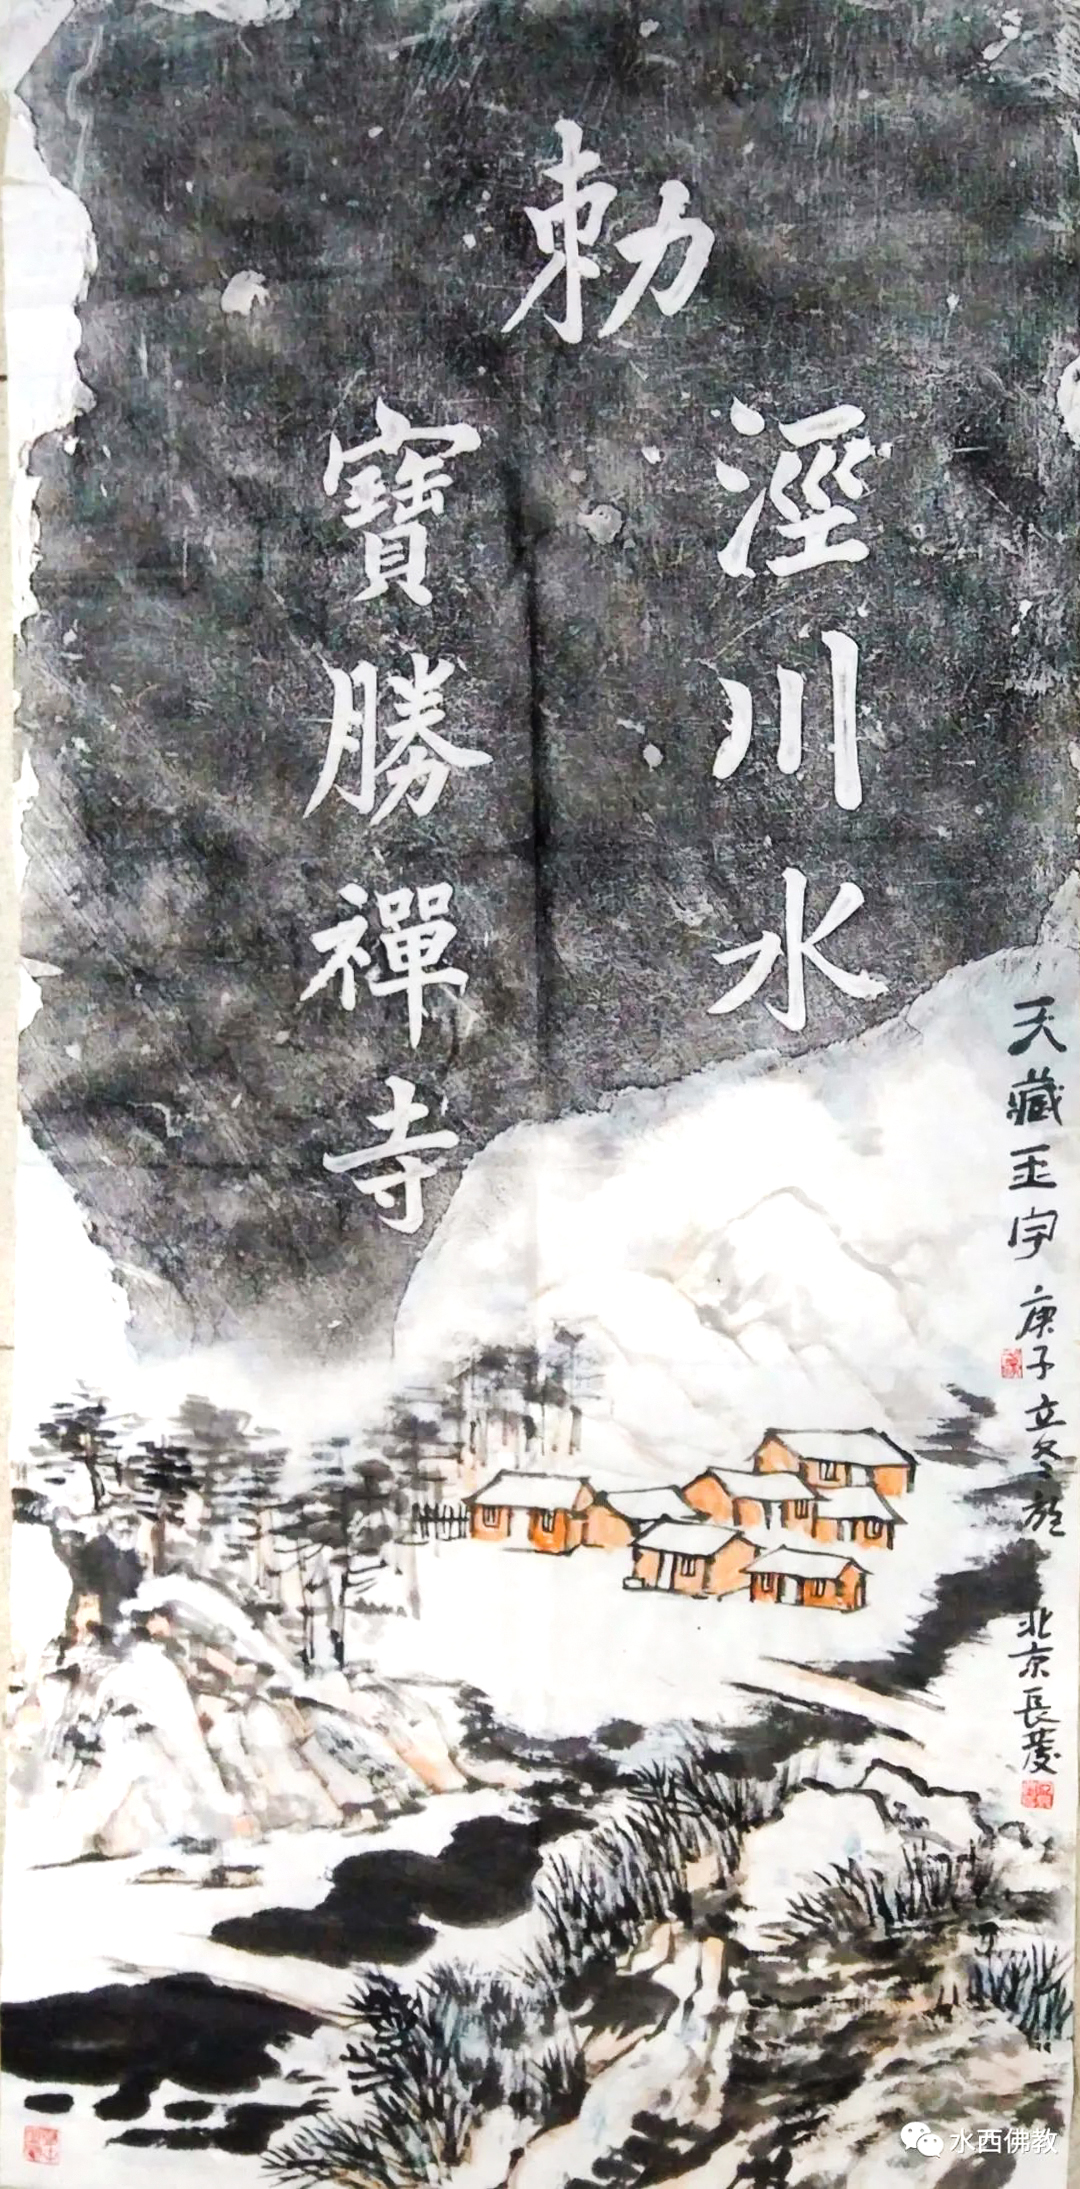 勅
涇川水
寶勝禪寺
天藏玉宇 庚子立冬於北京長慶
水西佛教